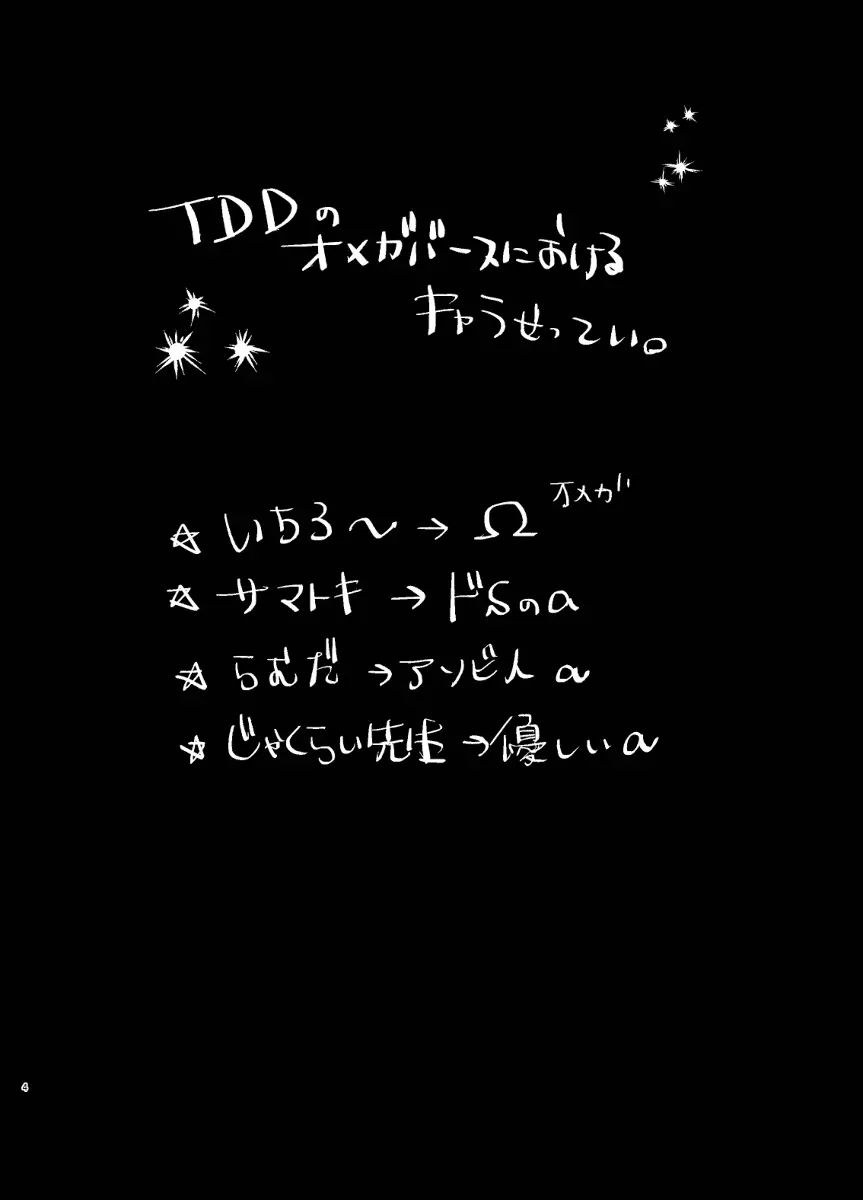 TDDの
オメガバースにおける
キャラせってい。
☆いちろ〜→Ω オメガ
☆サマトキ→ドSのα
☆らむだ→アソビ人α
☆じゃくらい先生→優しいα
4